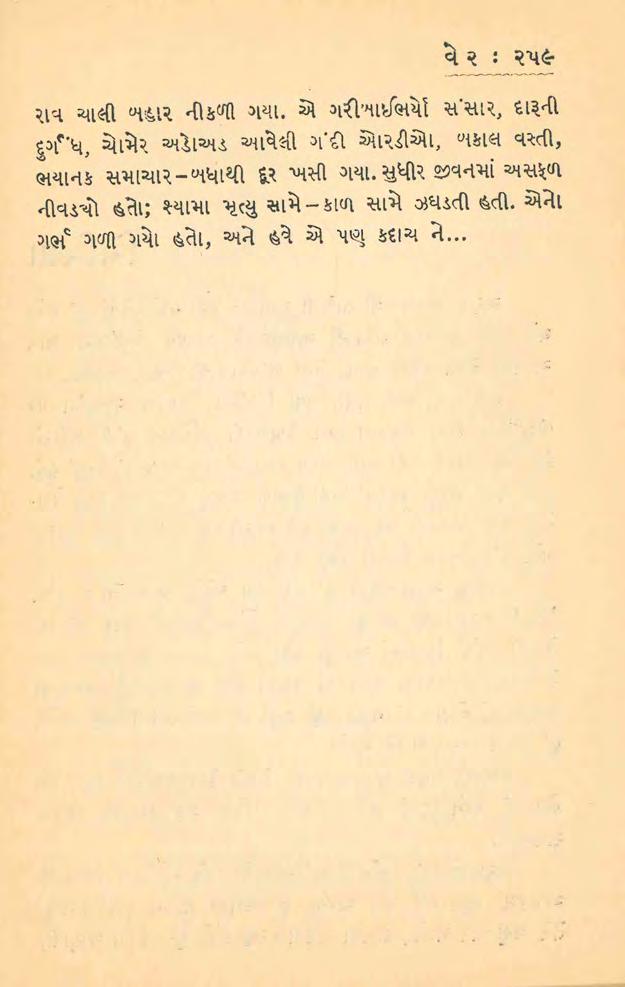 વેર : ૨૫૯
રાવ ચાલી બહાર નીકળી ગયા. એ ગરીબાઈભર્યો સંસાર, દારૂની
દુર્ગંધ, ચોમેર અડોઅડ આવેલી ગંદી ઓરડીઓ, બકાલ વસ્તી,
ભયાનક સમાચાર–બધાથી દૂર ખસી ગયા. સુધીર જીવનમાં અસફળ
નીવડચો હતો; શ્યામા મૃત્યુ સામે–કાળ સામે ઝઘડતી હતી. એનો
ગર્ભ ગળી ગયો હતો, અને હવે એ પણ કદાચ ને...